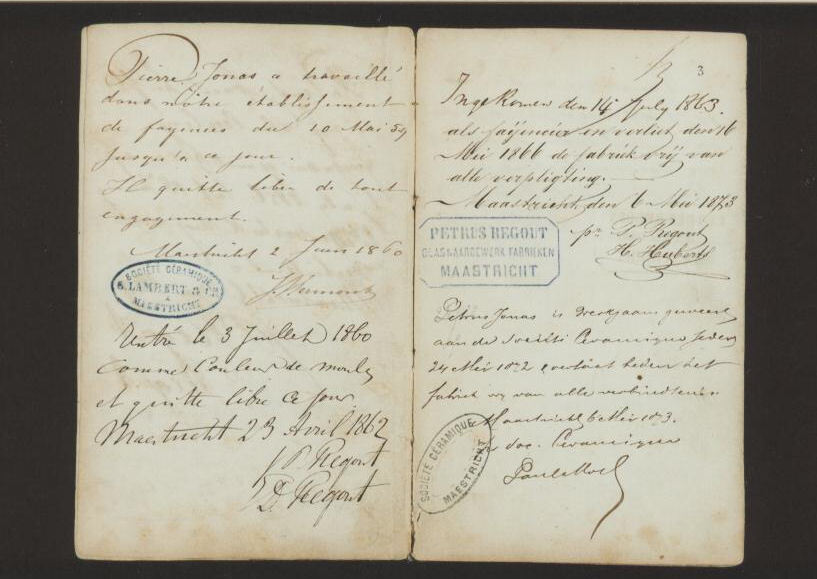 Pierre Jonas a travaillé
dans nôtre établissement
de fayences du 10 Mai 59
jusqu'a ce jour.
Il quitte libre de tout
engagement.
Maestricht 2 Juin 1860
SOCIÉTÉ CÉRAMIQUE
LAMBERT & Cie
MAESTRICHT
Rentré le 3 Juillet 1860
comme Couleur de moules
et quitte libre ce jour
Maestricht 23 Avril 1862
P. Regout
Regout
3
Ingekomen den 14 July 1863.
als faÿencier en verliet den 16
Mei 1866 de fabriek vrÿ van
alle verpligting.
Maastricht den 6 Mei 1873
pr P. Regout
H. Huberts
PETRUS REGOUT
GLAS & AARDEWERK FABRIEKEN
MAASTRICHT
Petrus Jonas is werkzaam geweest
aan de Société Ceramique sedert
24 Mei en verlaat heden het
fabriek vrij van alle verbindtenis
Maastricht 6 Mei 1873.
Soc. Ceramique
SOCIÉTÉ CÉRAMIQUE
MAESTRICHT